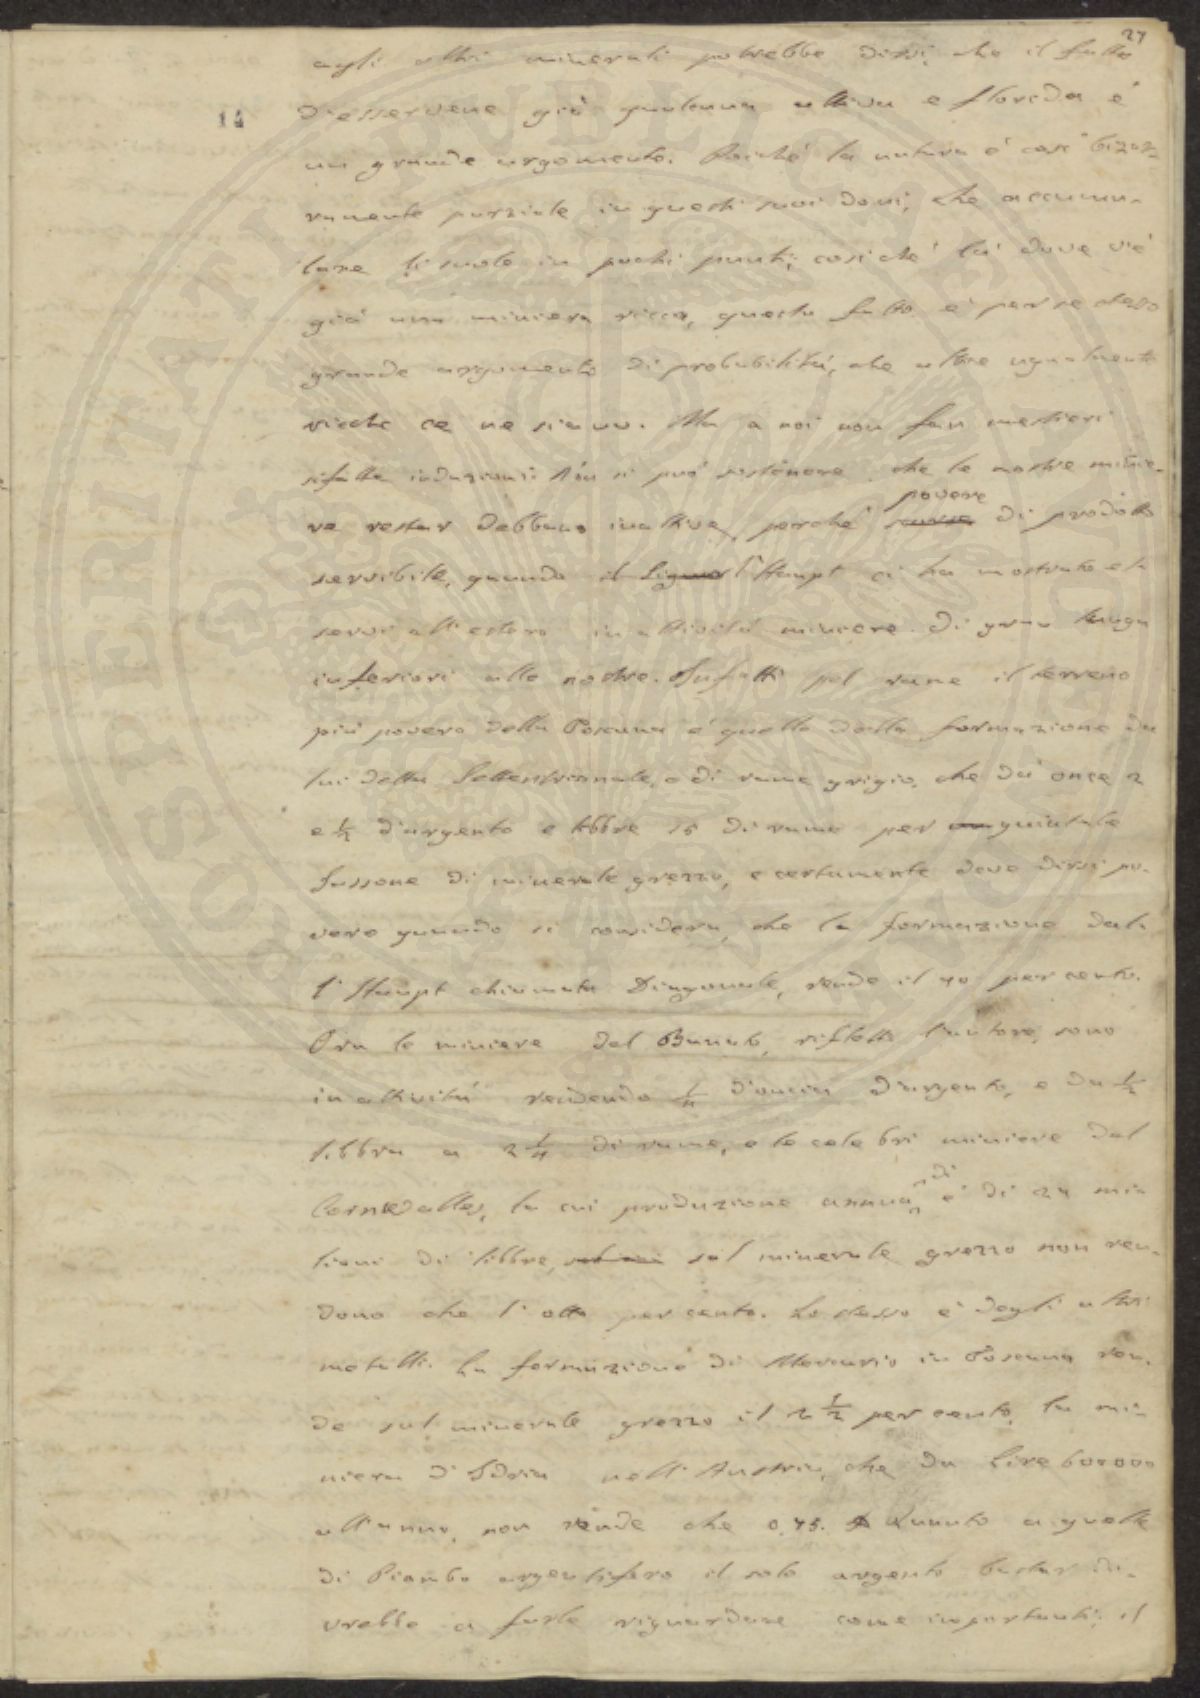 27
agli altri minerali potrebbe dirsi, che il fatto
14
d'esservene già qualcuna attiva e florida è
un grande argomento. Poiché la natura è così bizar-
ramente parziale in questi suoi doni, che accumu-
lare li suole in pochi punti; cosiché là dove v'è
già una miniera ricca, questo fatto è per se stesso
grande argomento di probabilità, che altre ugualmente
ricche ce ne siano. Ma a noi non fan mestieri
sifatte induzioni: Non si può sostenere che le nostre minie-
povere
re restar debbano inattive, perché scarse di prodotto
servibile, quando il Signor l'Haupt ci ha mostrato es-
servi all'estero in attività miniere di gran lunga
inferiori alle nostre. Infatti pel rame il terreno
più povero della Toscana è quello della formazione da
lui detta Settentrionale, e di rame grigio, che dà once 2
e ½ d'argento e libbre 15 di rame per quintale
sassone di minerale grezzo, e certamente deve dirsi po-
vero quando si considera, che la formazione dal-
l'Haupt chiamata Diagonale, rende il 40 per cento.
Ora le miniere del Banato, riflette l'autore, sono
in attività rendendo ¼ d'oncia d'argento, e da ½
libbra a 2 ¼ di rame, e le celebri miniere del
di
Cornwalles, la cui produzione annua è di 24 mi-
lioni di libbre, sul minerale grezzo non ren-
dono che l'otto per cento. Lo stesso è degli altri
metalli. La formazione di Mercurio in Toscana ren-
de sul minerale grezzo il 2 ½ per cento, la mi-
niera d'Idria nell'Austria, che dà Lire 600000
all'anno, non rende che 0,75. Quanto a quelle
di Piombo argentifero il solo argento bastar do-
vrebbe a farle riguardare come importanti, il